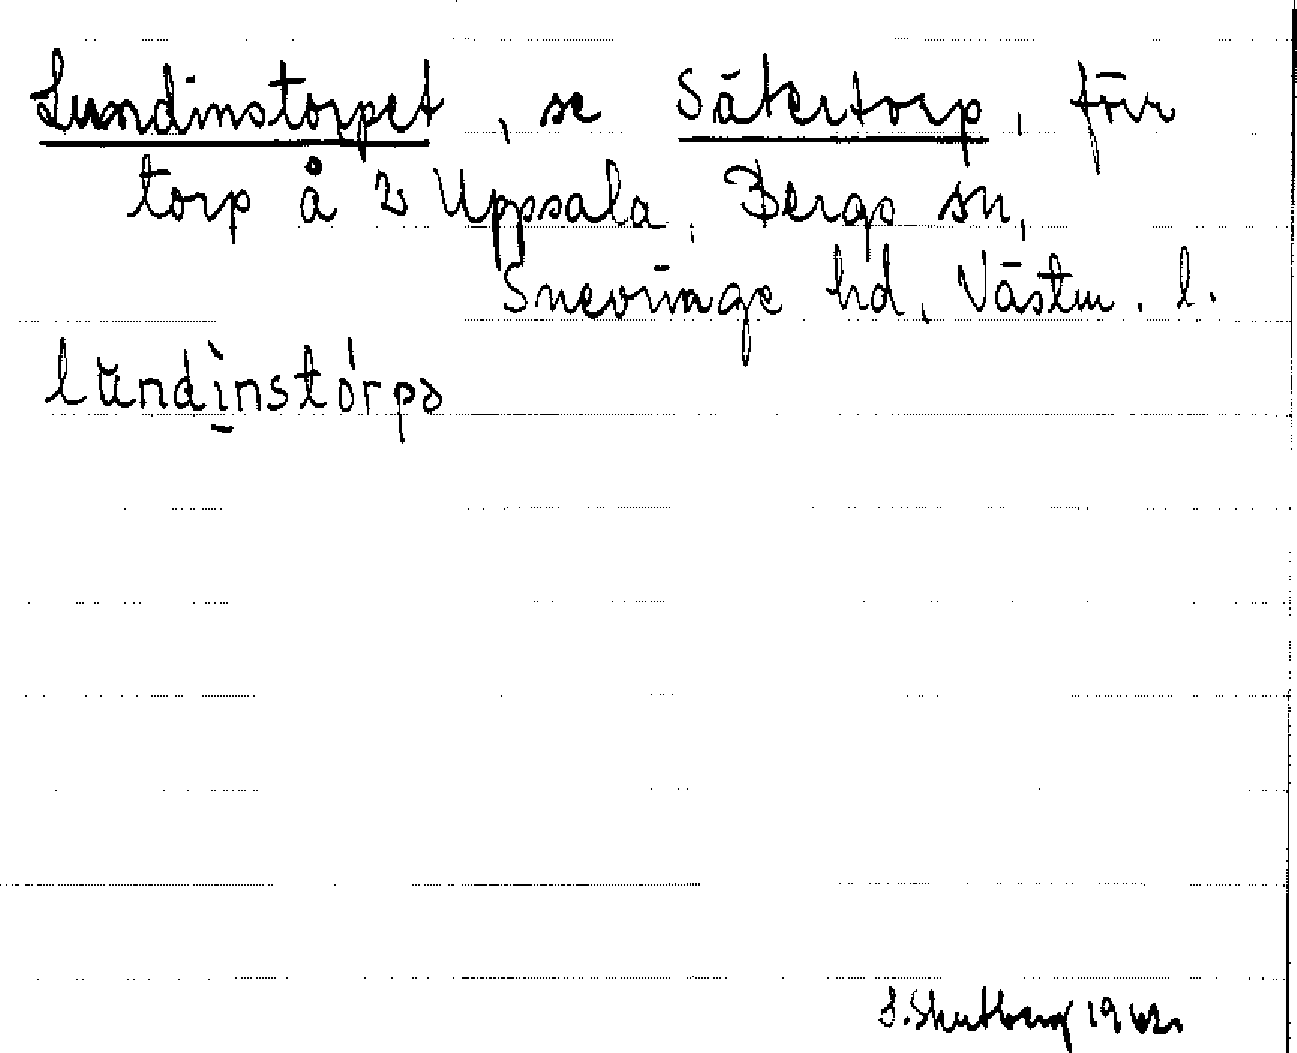 Lundinstorpet, se Säkertorp, förr
torp å 2 Uppsala, Bergs sn,
Snevringe hd, Västm. l.
lundinstórpə
1942